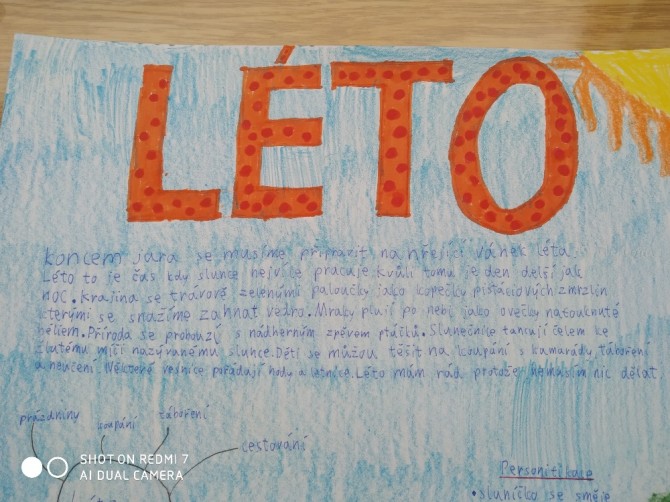 LÉTO
koncem jara se musíme připravit na hřející vánek léta.
Léto to je čas kdy slunce nejvíce pracuje kvůli tomu je den delší jak
noc. Krajina se trávově zelenými paloučky jako kopečky pistáciových zmrzlin
kterými se snažíme zahnat vedro. Mraky plují po nebi jako ovečky nafouknuté
héliem. Příroda se probouzí s nádherným zpěvem ptáčků. Slunečnice tancují čelem ke
žlutému míči nazývanému slunce. Děti se můžou těšit na koupání s kamarády, táboření
a neučení. Některé vesnice pořádají hody a letnice. Léto mám rád protože nemusím nic dělat
prázdniny
koupání
táboření
cestování
Personifikace
• sluníčko se směje
SHOT ON REDMI 7
AI DUAL CAMERA